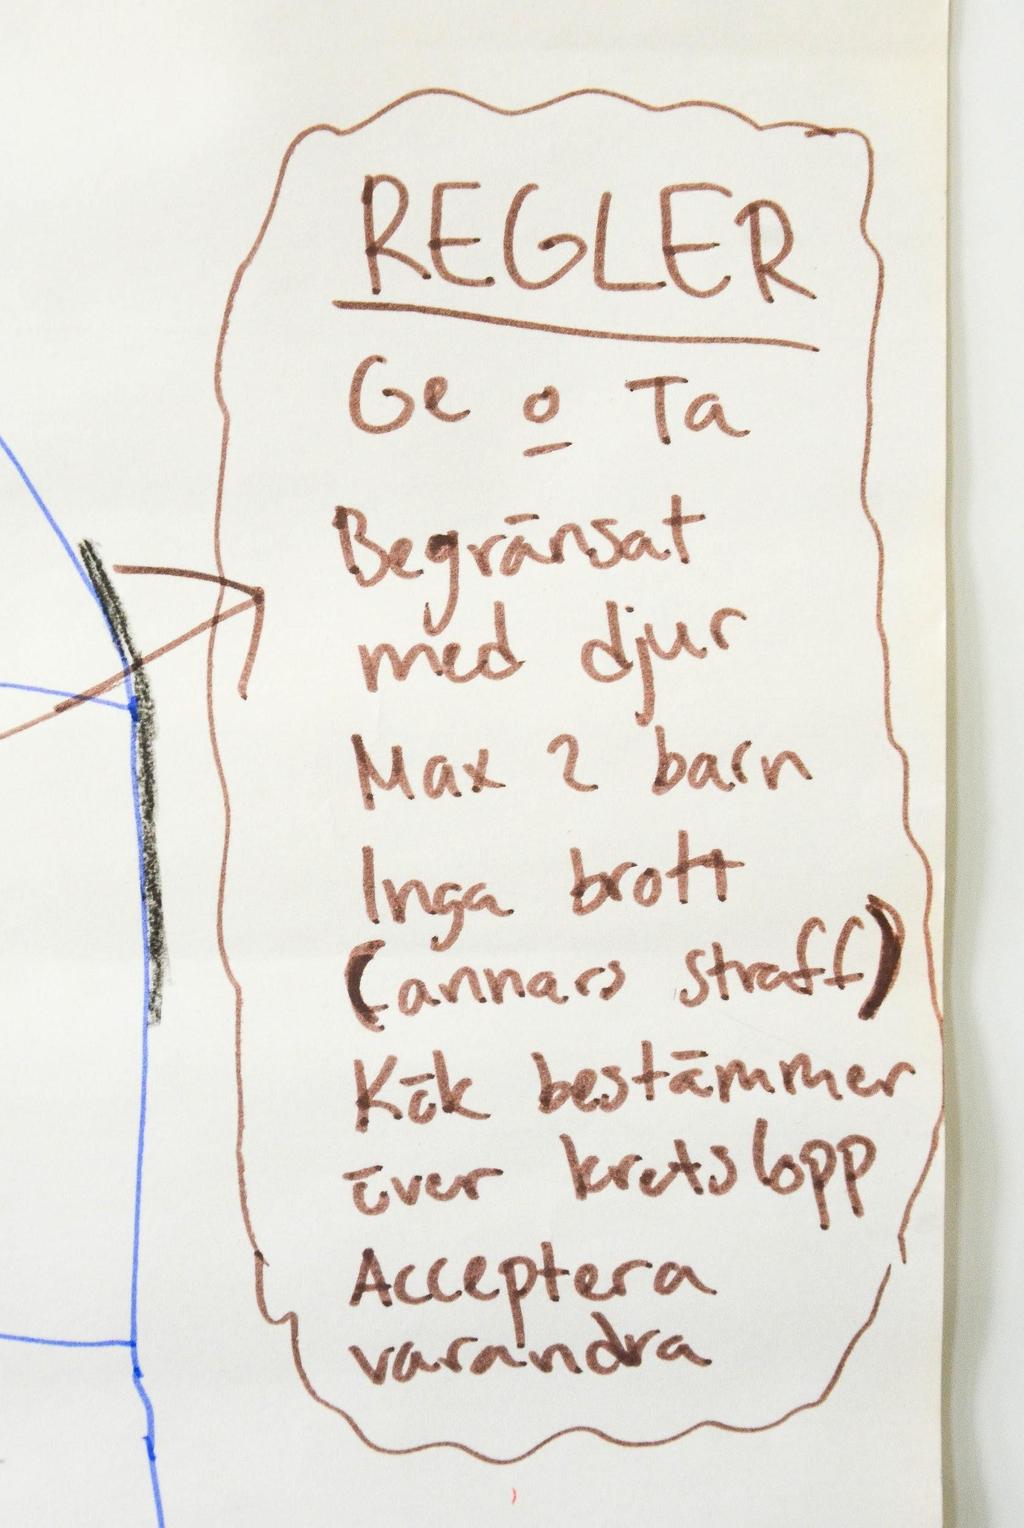 REGLER
Ge o Ta
Begränsat
med djur
Max 2 barn
Inga brott
(annars straff)
Kök bestämmer
över kretslopp
Acceptera
varandra